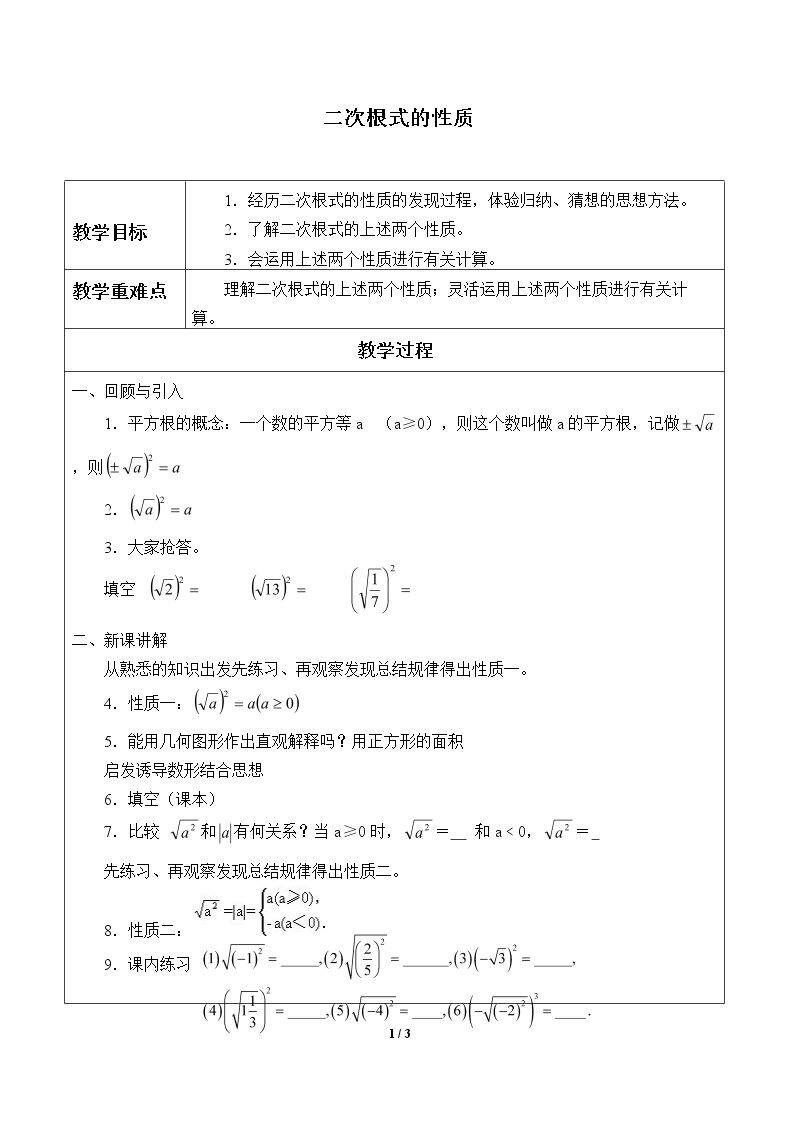 二次根式的性质
教学目标
1．经历二次根式的性质的发现过程，体验归纳、猜想的思想方法。
2．了解二次根式的上述两个性质。
3．会运用上述两个性质进行有关计算。
教学重难点
理解二次根式的上述两个性质；灵活运用上述两个性质进行有关计
算。
教学过程
一、回顾与引入
1．平方根的概念：一个数的平方等 a （a≥0），则这个数叫做 a 的平方根，记做 ±√a
，则 (±√a)² = a
2．(√a)² = a
3．大家抢答。
填空 (√2)² = (√13)² = (√(1/7))² =
二、新课讲解
从熟悉的知识出发先练习、再观察发现总结规律得出性质一。
4．性质一：(√a)² = a(a ≥ 0)
5．能用几何图形作出直观解释吗？用正方形的面积
启发诱导数形结合思想
6．填空（课本）
7．比较 √(a²) 和 |a| 有何关系？当 a≥0 时，√(a²) ＝__ 和 a﹤0，√(a²) ＝_
先练习、再观察发现总结规律得出性质二。
8．性质二：√(a²) =|a|= { a(a≥0)， -a(a＜0).
9．课内练习 (1)√((−1)²) = _____,(2)√((2/5)²) = ______,(3)(−√3)² = _____,
(4)(√(1 1/3))² = _____,(5)√((−4)²) = ____,(6)(−√((−2)²))³ = ____.
1 / 3